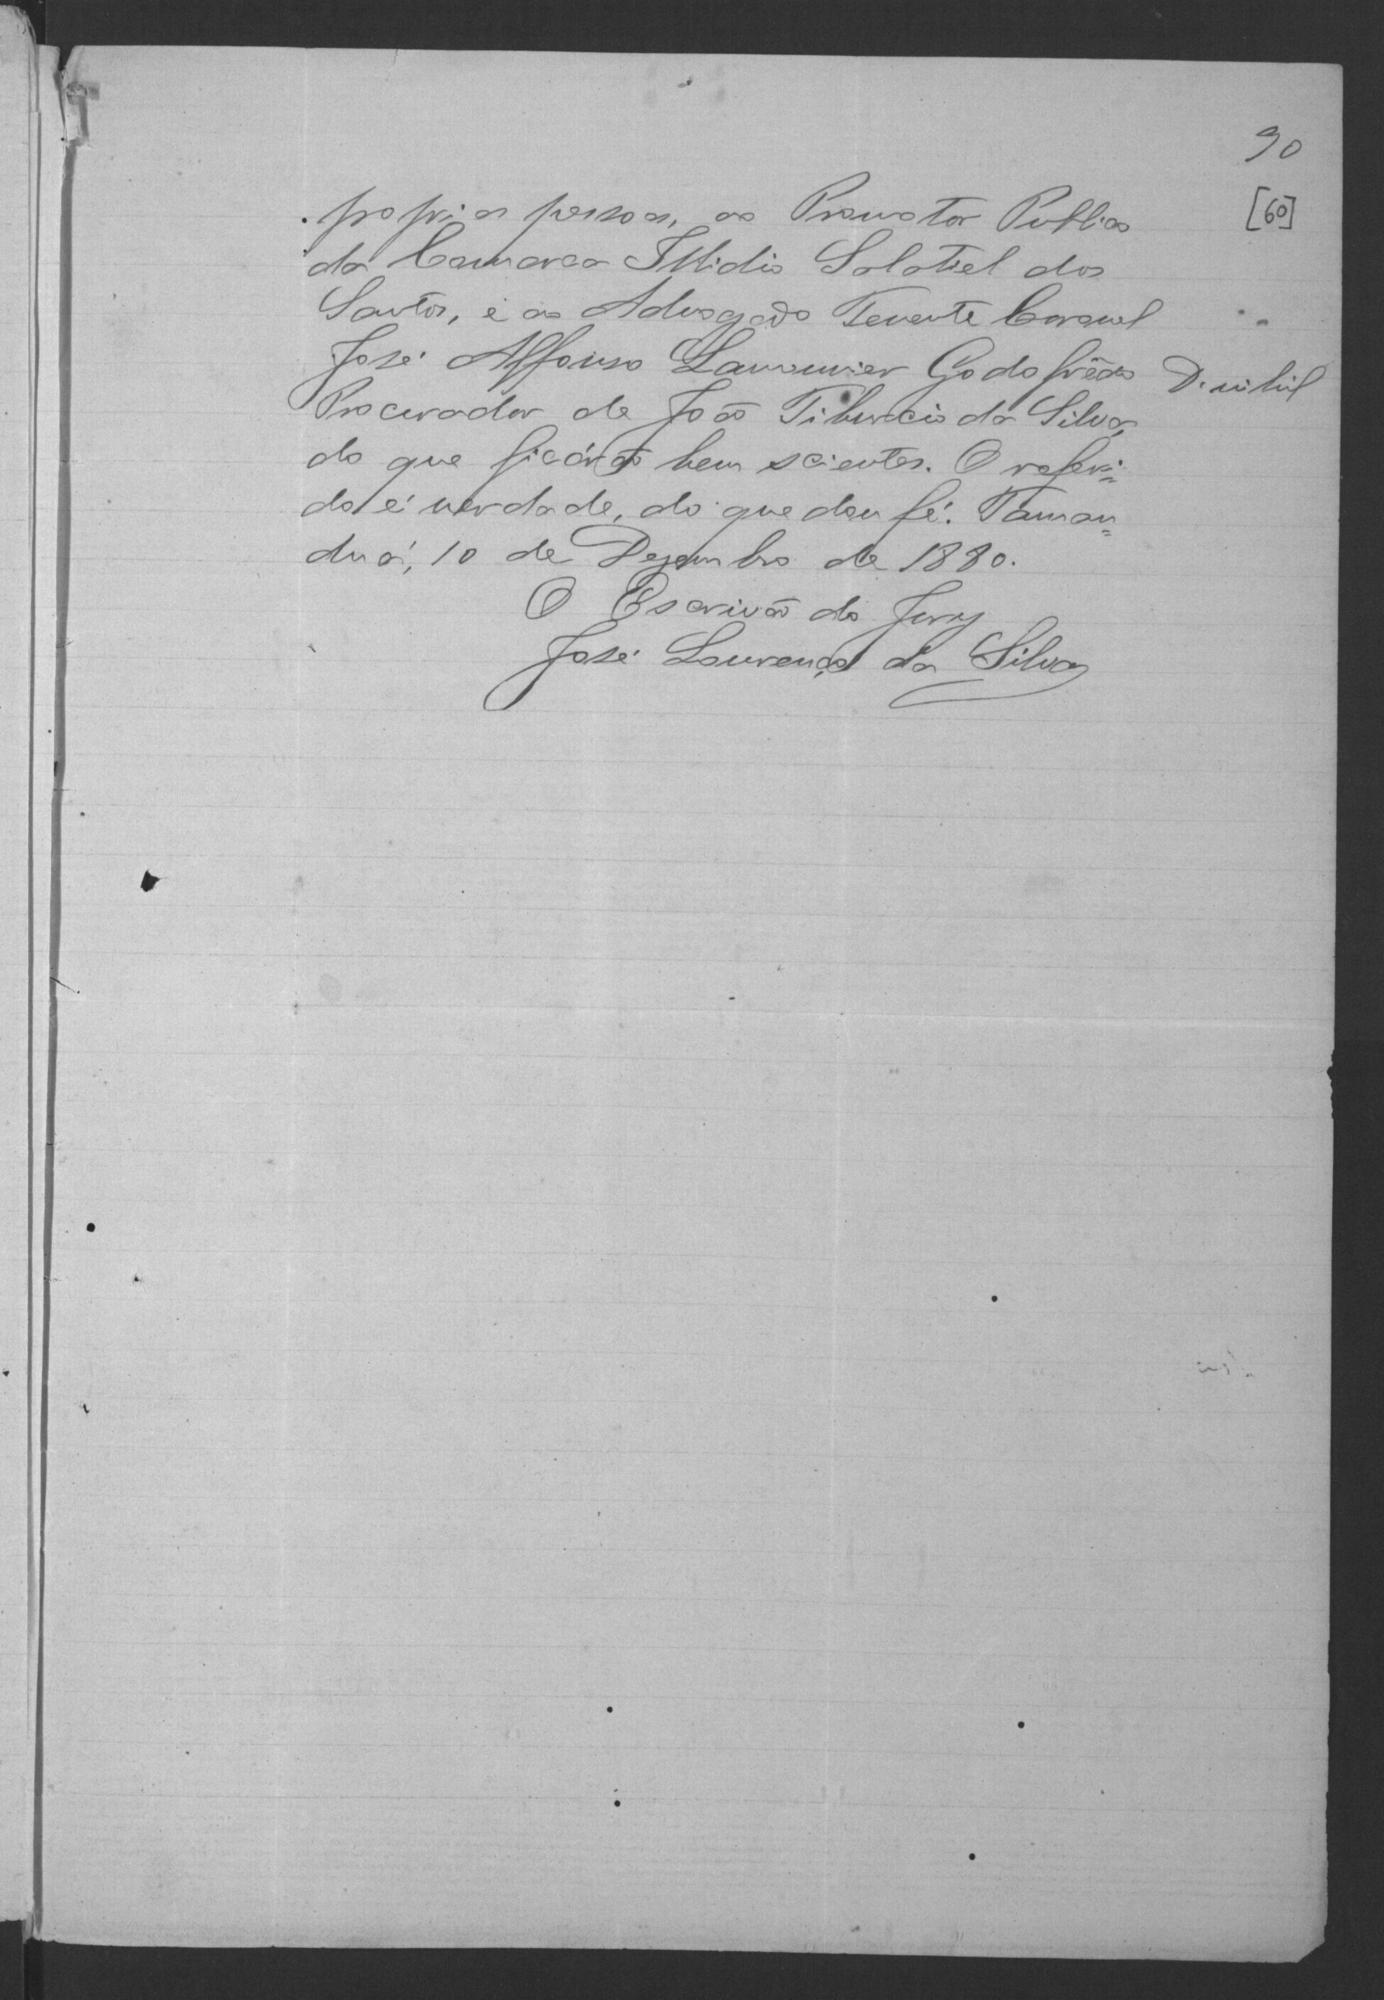 90
[60]
propria pessoa, ao Promotor Publico
da Comarca Illidio Salatiel dos
Santos, e ao Advogado Tenente Coronel
José Affonso Lamounier Godofrêdo
Procurador de João Tiburcio da Silva,
do que ficárão bem scientes. O referi=
do é verdade, do que dou fé. Taman=
duá, 10 de Dezembro de 1880.
O Escrivão do Jury
José Lourenço da Silva
D. nihil